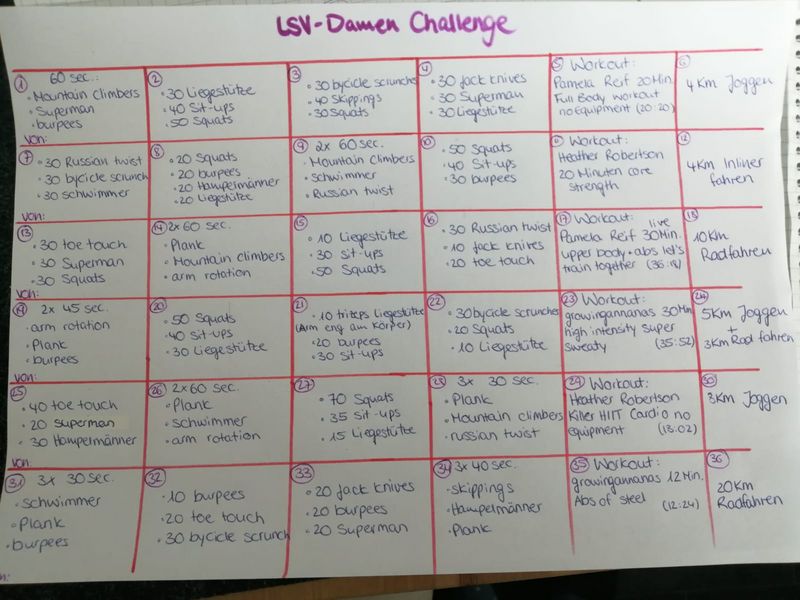 LSV-Damen Challenge
1 60 sec.:
• Mountain climbers
• Superman
• burpees
von:
2
• 30 Liegestütze
• 40 Sit-ups
• 50 Squats
3
• 30 bycicle scrunches
• 40 Skippings
• 30 Squats
4
• 30 Jack knives
• 30 Superman
• 30 Liegestütze
5 Workout:
Pamela Reif 20 Min.
Full Body workout
no equipment (20:20)
6
4 Km Joggen
7
• 30 Russian twist
• 30 bycicle scrunch
• 30 schwimmer
von:
8
• 20 Squats
• 20 burpees
• 20 Hampelmänner
• 20 Liegestütze
9 2x 60 sec.
• Mountain climbers
• schwimmer
• Russian twist
10
• 50 Squats
• 40 Sit-ups
• 30 burpees
Workout:
Heather Robertson
20 Minuten core
strength
12
4Km Inliner
fahren
13
• 30 toe touch
• 30 Superman
• 30 Squats
von:
14 2x 60 sec.
• Plank
• Mountain climbers
• arm rotation
15
• 10 Liegestütze
• 30 sit-ups
• 50 Squats
16
• 30 Russian twist
• 10 Jack knives
• 20 toe touch
17 Workout: live
Pamela Reif 30Min.
upper body + abs let's
train together (36:18)
18
10Km
Radfahren
19 2x 45 sec.
• arm rotation
• Plank
• burpees
von:
20
• 50 Squats
• 40 Sit-ups
• 30 Liegestütze
21
• 10 trizeps Liegestütze
(Arm eng am Körper)
• 20 burpees
• 30 Sit-ups
22
• 30 bycicle scrunches
• 20 Squats
• 10 Liegestütze
23 Workout:
growingannanas 30 Min
high intensity super
sweaty (35:52)
24
5Km Joggen
+
3Km Rad fahren
25
• 40 toe touch
• 20 superman
• 30 Hampelmänner
von:
26 2x60 sec.
• Plank
• schwimmer
• arm rotation
27
• 70 Squats
• 35 Sit-ups
• 15 Liegestütze
28 3x 30 sec.
• Plank
• Mountain climbers
• russian twist
29 Workout:
Heather Robertson
Killer HIIT Cardio no
equipment (13:02)
30
3Km Joggen
31 3x 30sec.
• schwimmer
• Plank
• burpees
32
• 10 burpees
• 20 toe touch
• 30 bycicle scrunch
33
• 20 Jack knives
• 20 burpees
• 20 Superman
34 3x 40 sec.
• skippings
• Hampelmänner
• Plank
35 Workout:
growingannanas 12 Min.
Abs of steel
(12:24)
36
20Km
Radfahren